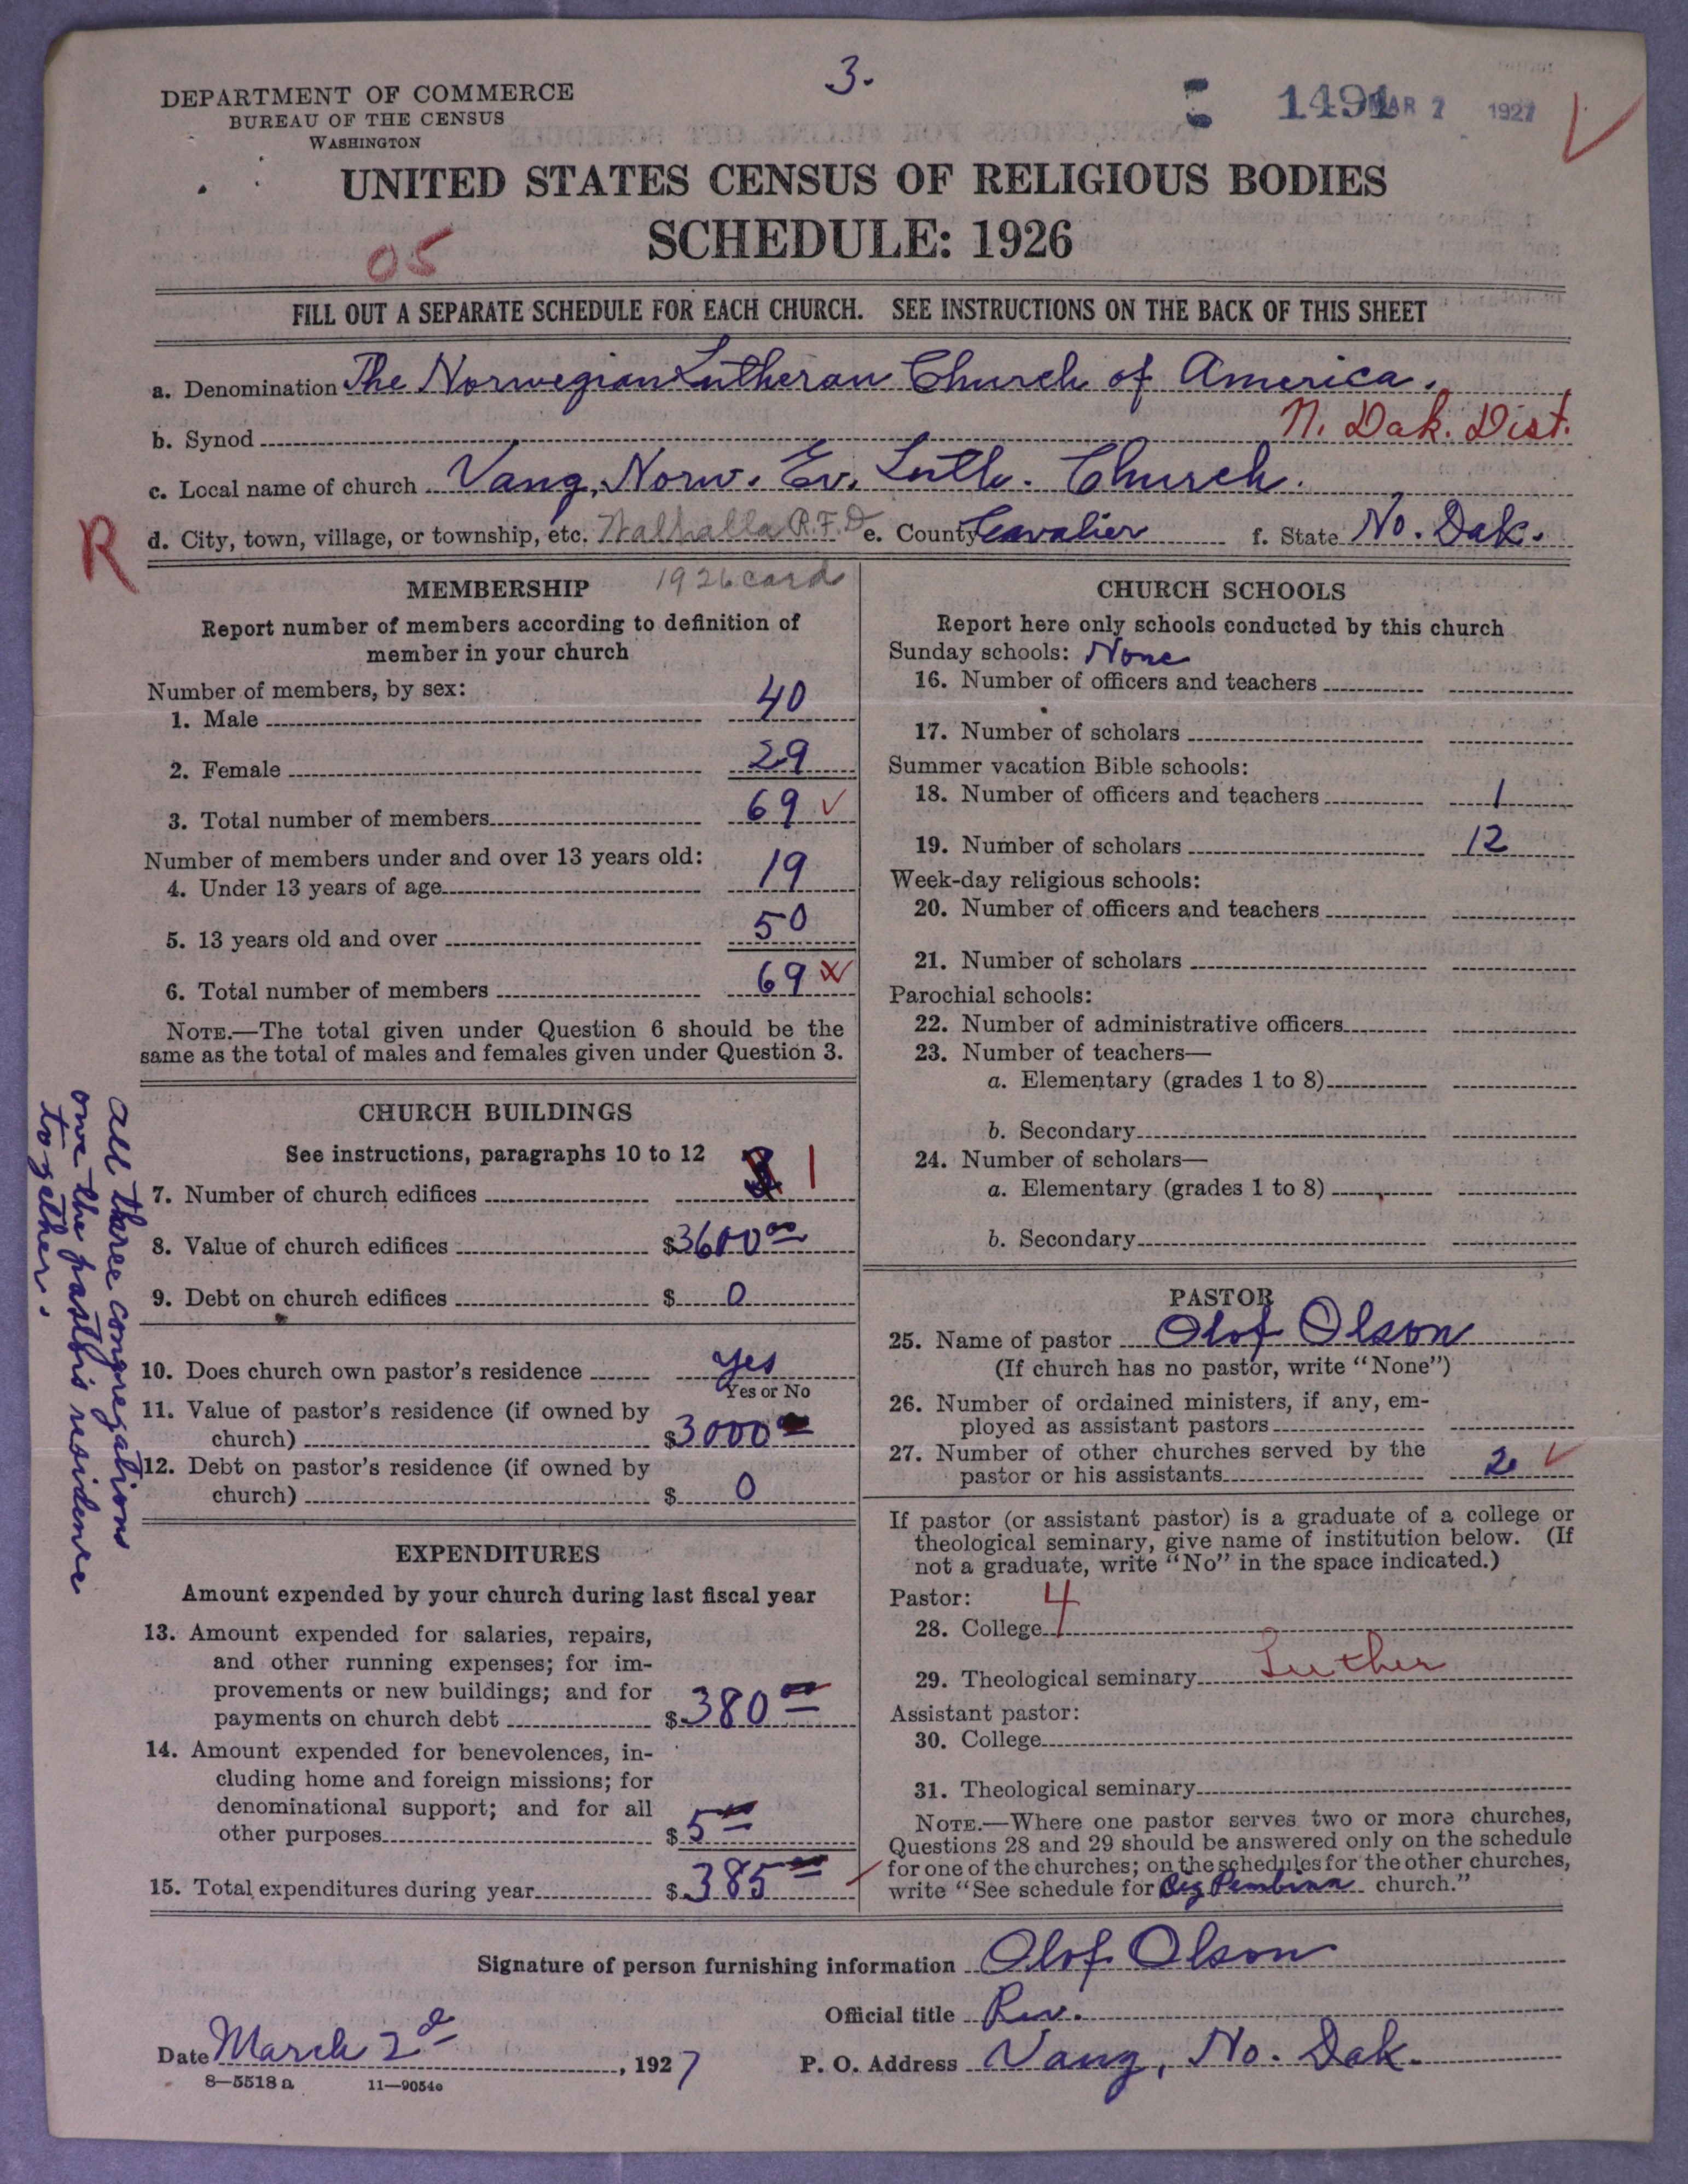 3.
DEPARTMENT OF COMMERCE
BUREAU OF THE CENSUS
WASHINGTON
1491 MAR 7 1927
UNITED STATES CENSUS OF RELIGIOUS BODIES
SCHEDULE: 1926
05
FILL OUT A SEPARATE SCHEDULE FOR EACH CHURCH. SEE INSTRUCTIONS ON THE BACK OF THIS SHEET
a. Denomination The Norwegian Lutheran Church of America.
b. Synod N. Dak. Dist.
c. Local name of church Vang, Norw. Ev. Luth. Church.
R
d. City, town, village, or township, etc. Walhalla R.F.D e. County Cavalier f. State No. Dak.
MEMBERSHIP 1926 card
Report number of members according to definition of
member in your church
Number of members, by sex:
1. Male 40
2. Female 29
3. Total number of members 69
Number of members under and over 13 years old:
4. Under 13 years of age 19
5. 13 years old and over 50
6. Total number of members 69
NOTE.—The total given under Question 6 should be the
same as the total of males and females given under Question 3.
CHURCH BUILDINGS
See instructions, paragraphs 10 to 12
7. Number of church edifices 1
8. Value of church edifices $3600 00
9. Debt on church edifices $ 0
10. Does church own pastor's residence yes
Yes or No
11. Value of pastor's residence (if owned by
church) $3000
12. Debt on pastor's residence (if owned by
church) $ 0
All three congregations
own the pastor's residence
together.
EXPENDITURES
Amount expended by your church during last fiscal year
13. Amount expended for salaries, repairs,
and other running expenses; for im-
provements or new buildings; and for
payments on church debt $380 00
14. Amount expended for benevolences, in-
cluding home and foreign missions; for
denominational support; and for all
other purposes $5 00
15. Total expenditures during year $385 00
CHURCH SCHOOLS
Report here only schools conducted by this church
Sunday schools: None
16. Number of officers and teachers
17. Number of scholars
Summer vacation Bible schools:
18. Number of officers and teachers 1
19. Number of scholars 12
Week-day religious schools:
20. Number of officers and teachers
21. Number of scholars
Parochial schools:
22. Number of administrative officers
23. Number of teachers—
a. Elementary (grades 1 to 8)
b. Secondary
24. Number of scholars—
a. Elementary (grades 1 to 8)
b. Secondary
PASTOR
25. Name of pastor Olof Olson
(If church has no pastor, write "None")
26. Number of ordained ministers, if any, em-
ployed as assistant pastors
27. Number of other churches served by the
pastor or his assistants 2
If pastor (or assistant pastor) is a graduate of a college or
theological seminary, give name of institution below. (If
not a graduate, write "No" in the space indicated.)
Pastor: 4
28. College
29. Theological seminary Luther
Assistant pastor:
30. College
31. Theological seminary
NOTE.—Where one pastor serves two or more churches,
Questions 28 and 29 should be answered only on the schedule
for one of the churches; on the schedules for the other churches,
write "See schedule for Big Pembina church."
Signature of person furnishing information Olof Olson
Official title Rev.
Date March 2d, 1927 P. O. Address Vang, No. Dak.
8—5518 a 11—9054c